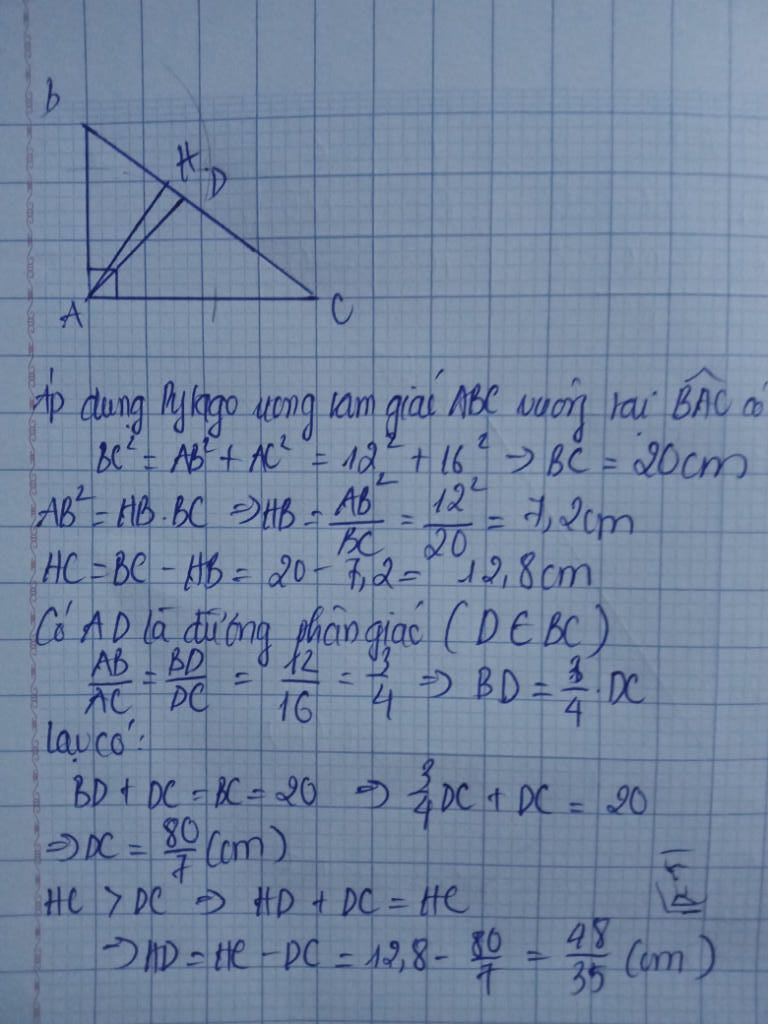 B
H
D
A
C
Áp dụng Pytago trong tam giác ABC vuông tại BAC có
BC² = AB² + AC² = 12² + 16² → BC = 20cm
AB² = HB.BC ⇒ HB = AB²/BC = 12²/20 = 7,2cm
HC = BC - HB = 20 - 7,2 = 12,8cm
Có AD là đường phân giác (D ∈ BC)
AB/AC = BD/DC = 12/16 = 3/4 ⇒ BD = 3/4 . DC
Lại có:
BD + DC = BC = 20 ⇒ 3/4 DC + DC = 20
⇒ DC = 80/7 (cm)
HC > DC ⇒ HD + DC = HC
⇒ HD = HC - DC = 12,8 - 80/7 = 48/35 (cm)